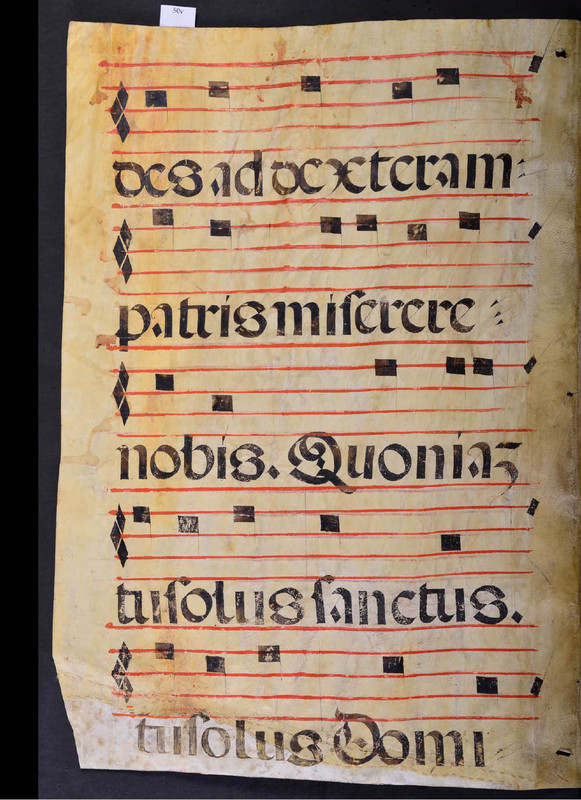 des ad dexteram:
patris miserere:
nobis. Quoniaz
tu solus sanctus.
tu solus Domi